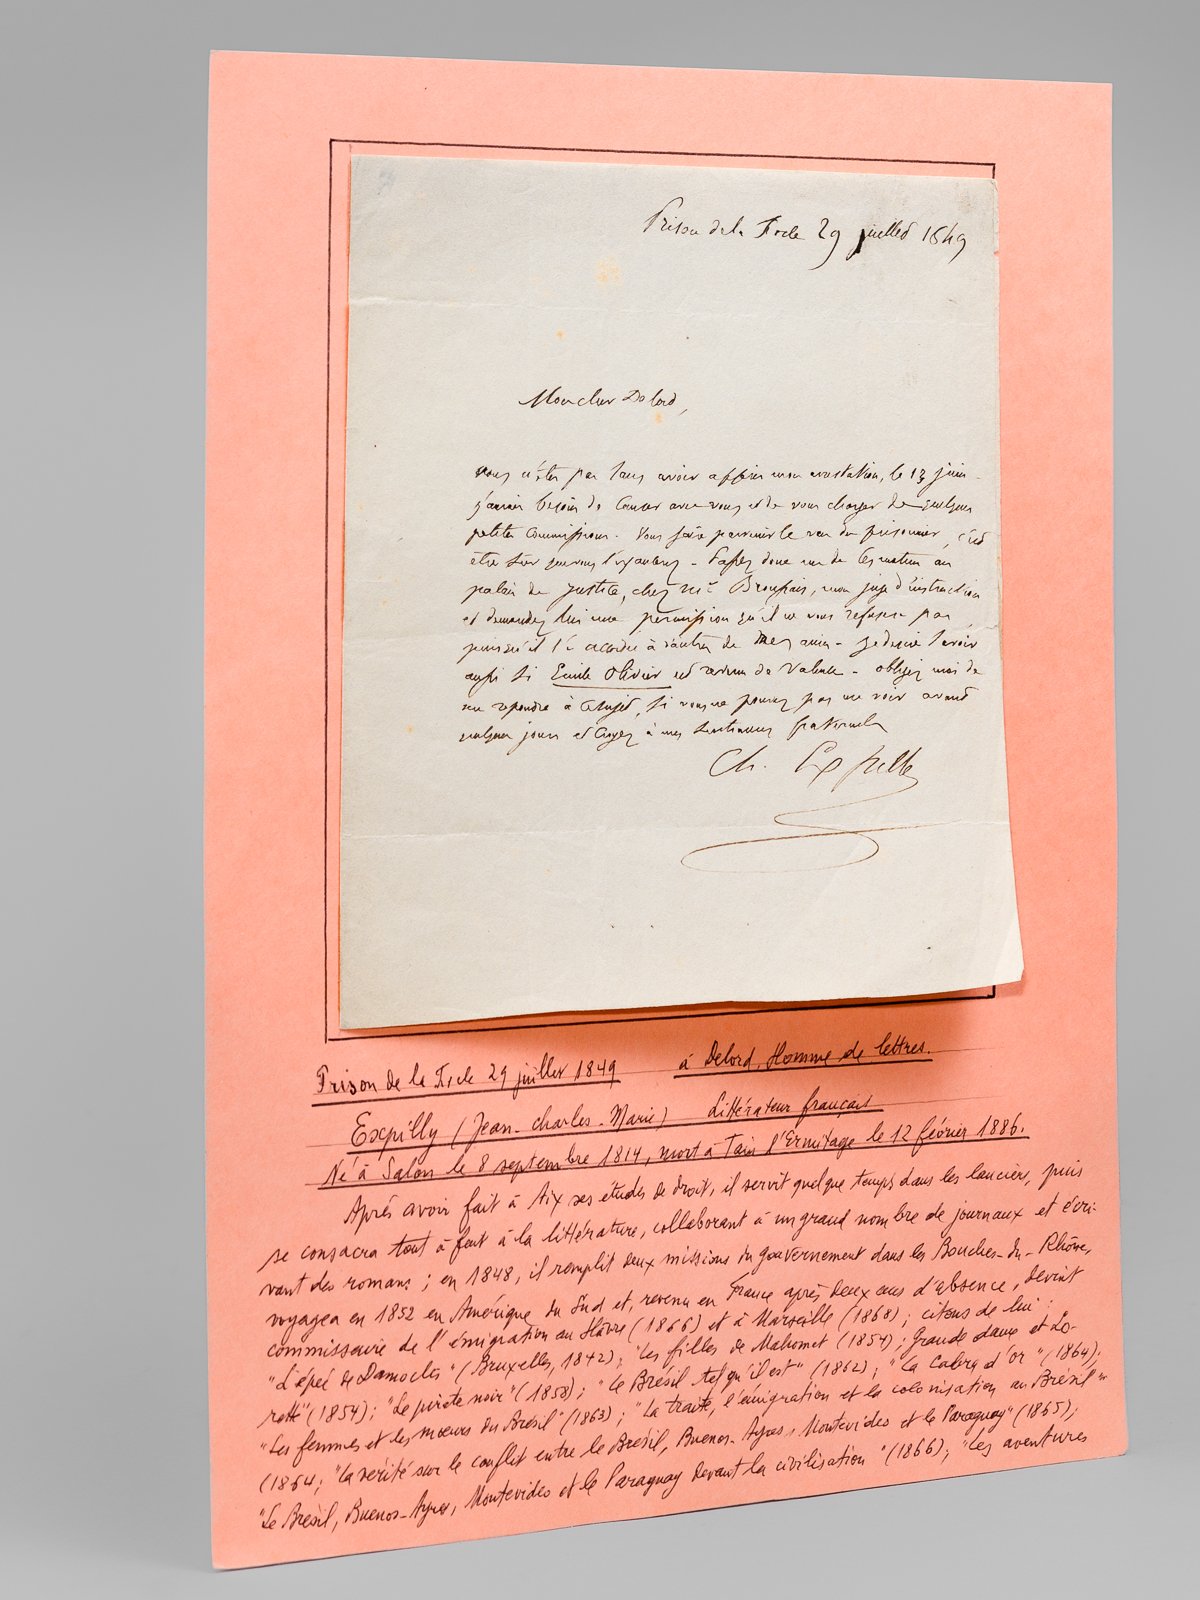 Prison de la Force 29 juillet 1849
Mon cher Delord,
vous n'êtes pas sans avoir appris mon arrestation, le 13 juin.
j'aurais besoin de causer avec vous et de vous charger de quelques
petites commissions. Vous faire parvenir le vœu du prisonnier, c'est
être sûr que vous l'exaucerez. Passez donc un de ces matins au
palais de justice, chez Mr Broussais, mon juge d'instruction
et demandez lui une permission qu'il ne vous refusera pas,
puisqu'il l'a accordée à d'autres de mes amis. je désire savoir
aussi si Emile Olivier est revenu de Valence. obligez moi de
me répondre à ce sujet, si vous ne pouvez pas me voir avant
quelques jours et croyez à mes sentiments fraternels
Ch. Expilly
Prison de la Force 29 juillet 1849 à Delord, Homme de lettres.
Expilly (Jean-Charles-Marie) Littérateur français
Né à Salon le 8 septembre 1814, mort à Tain l'Ermitage le 12 février 1886.
Après avoir fait à Aix ses études de droit, il servit quelque temps dans les lanciers, puis
se consacra tout à fait à la littérature, collaborant à un grand nombre de journaux et écri-
vant des romans ; en 1848, il remplit deux missions du gouvernement dans les Bouches-du-Rhône,
voyagea en 1852 en Amérique du Sud et, revenu en France après deux ans d'absence, devint
commissaire de l'émigration au Hâvre (1866) et à Marseille (1868) ; citons de lui :
"L'épée de Damoclès" (Bruxelles, 1842) ; "Les filles de Mahomet (1854) ; Grande dame et Lo-
rette" (1854) ; "Le pirate noir" (1858) ; "Le Brésil tel qu'il est" (1862) ; "La Cabra d'or" (1864) ;
"Les femmes et les mœurs du Brésil" (1863) ; "La traite, l'émigration et la colonisation au Brésil"
(1864 ; "La vérité sur le conflit entre le Brésil, Buenos-Ayres, Montevideo et le Paraguay" (1865) ;
"Le Brésil, Buenos-Ayres, Montevideo et le Paraguay devant la civilisation" (1866) ; "Les aventures